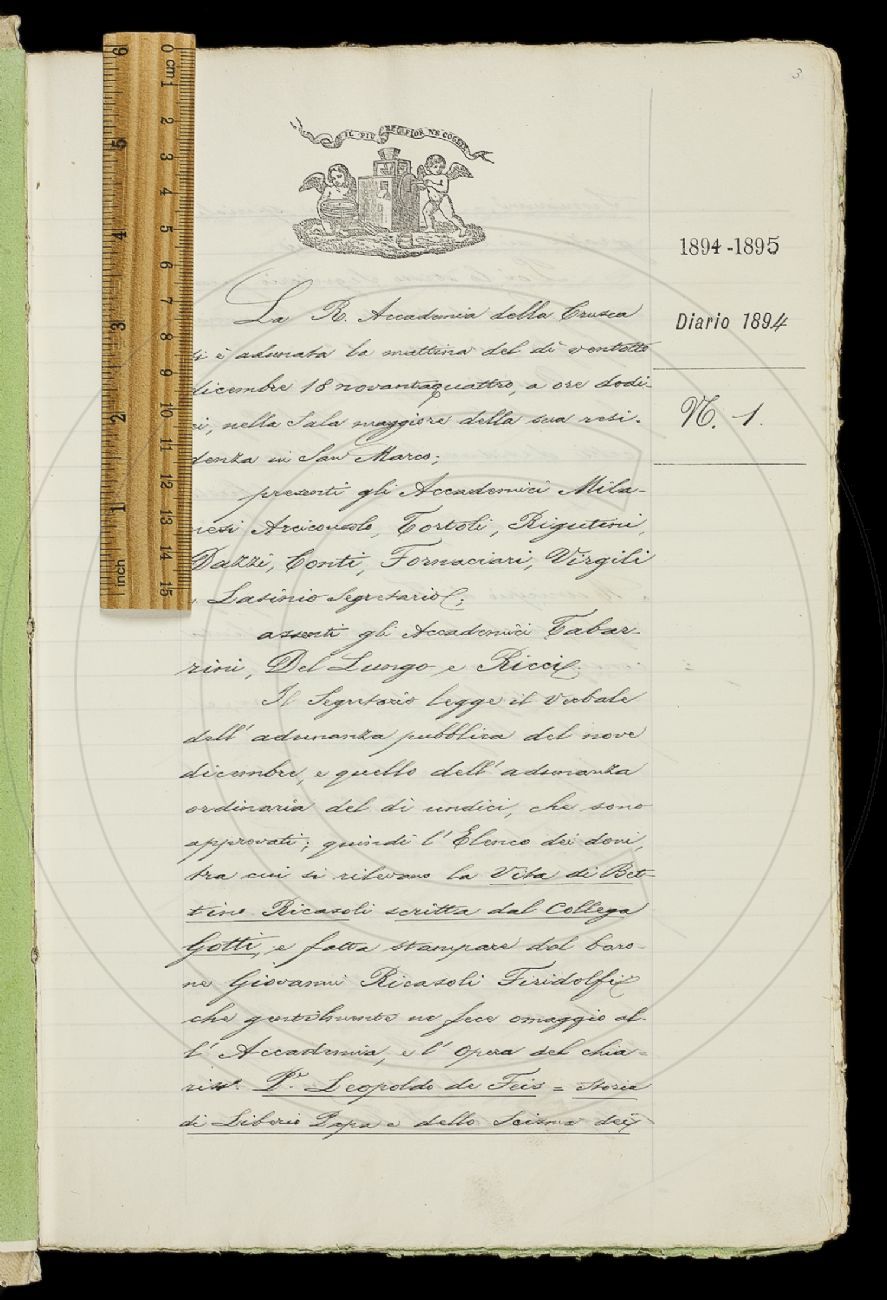 3
IL PIÙ BEL FIOR NE COGLIE
1894-1895
Diario 1894
N. 1.
La R. Accademia della Crusca
si è adunata la mattina del dì ventotto
dicembre 18 novantaquattro, a ore dodi-
ci, nella Sala maggiore della sua resi-
denza in San Marco;
presenti gli Accademici Mila-
nesi Arciconsolo, Tortoli, Rigutini,
Dazzi, Conti, Fornaciari, Virgili
e Lasinio Segretario;
assenti gli Accademici Tabar-
rini, Del Lungo e Ricci.
Il Segretario legge il Verbale
dell'adunanza pubblica del nove
dicembre, e quello dell'adunanza
ordinaria del dì undici, che sono
approvati; quindi l'Elenco dei doni,
tra cui si rilevano la Vita di Bet-
tino Ricasoli scritta dal Collega
Gotti, e fatta stampare dal baro-
ne Giovanni Ricasoli Firidolfi
che gentilmente ne fece omaggio al-
l'Accademia, e l'Opera del chia-
riss.° P.e Leopoldo de Feis = Storia
di Liberio Papa e dello Scisma dei
0 cm 1 2 3 4 5 6 7 8 9 10 11 12 13 14 15
inch 1 2 3 4 5 6